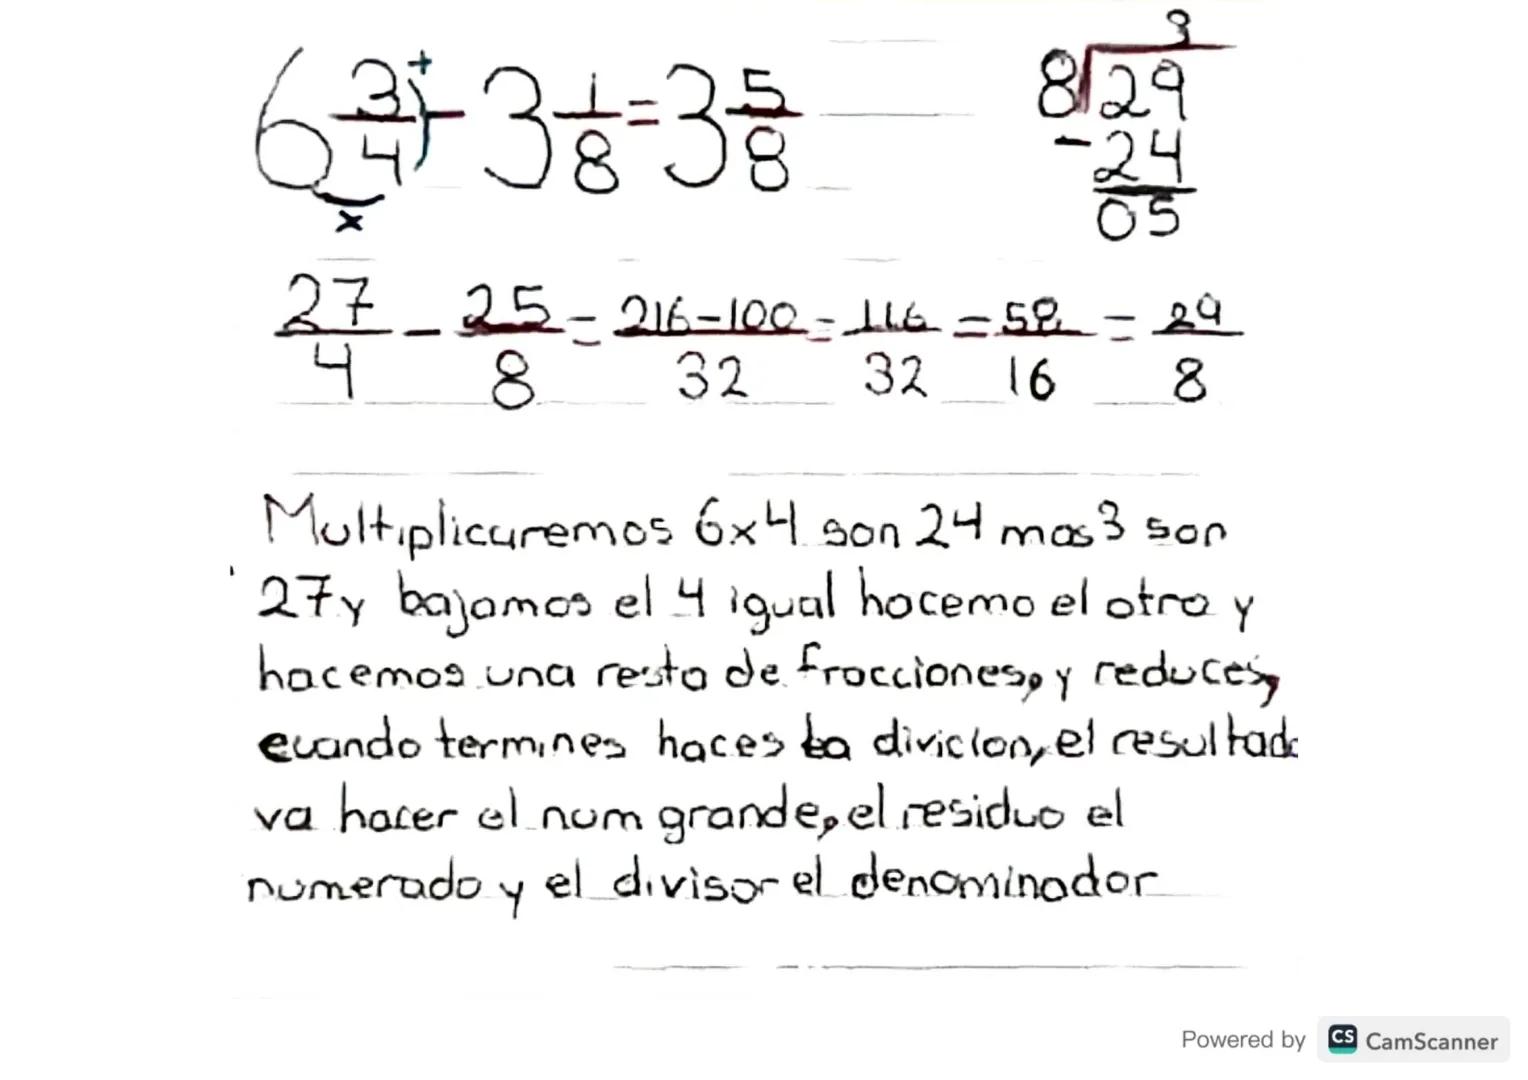 6 3/4 - 3 1/8 = 3 5/8
+
x
3
8 29
-24
05
27/4 - 25/8 = 216-100/32 = 116/32 = 58/16 = 29/8
Multiplicaremos 6x4 son 24 mas 3 son
27 y bajamos el 4 igual hacemo el otro y
hacemos una resta de fracciones, y reduces,
cuando termines haces la divicion, el resultado
va hacer el num grande, el residuo el
numerado y el divisor el denominador
Powered by CS CamScanner